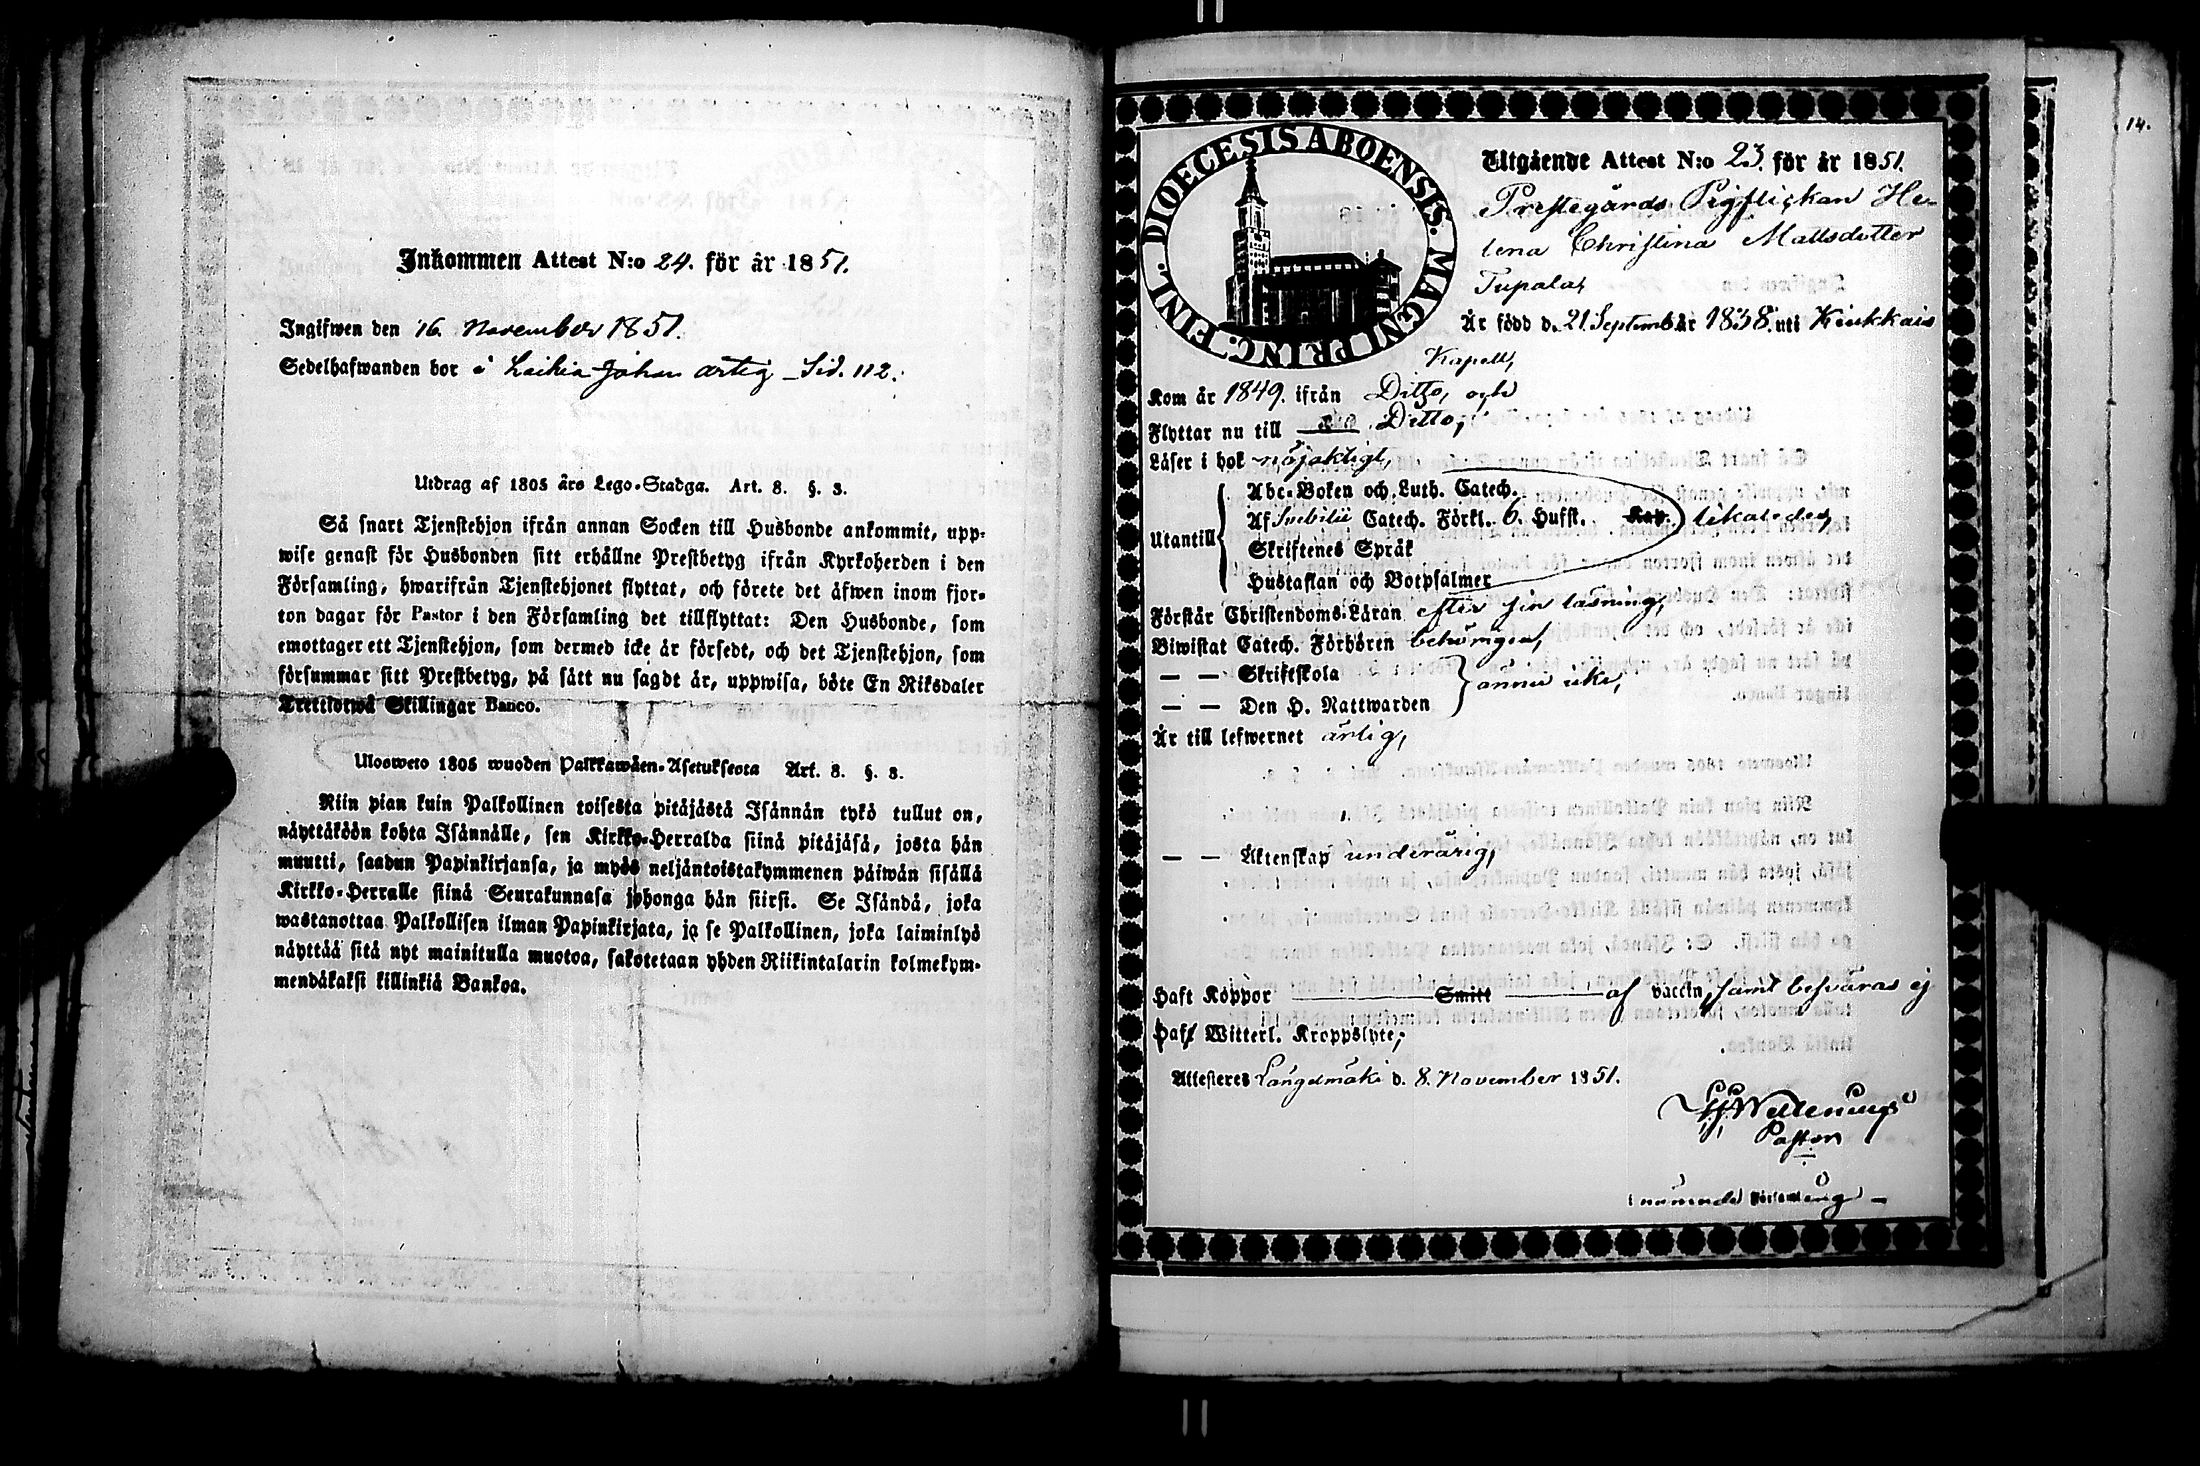 Inkommen Attest N:o 24. för år 1851.
Ingifwen den 16. November 1851.
Sedelhafwanden bor i Laihia Johan Artig – Sid. 112.
Utdrag af 1805 års Lego-Stadga. Art. 8. §. 3.
Så snart Tjenstehjon ifrån annan Socken till Husbonde ankommit, upp-
wise genast för Husbonden sitt erhållne Prestbetyg ifrån Kyrkoherden i den
Församling, hwarifrån Tjenstehjonet flyttat, och förete det äfwen inom fjor-
ton dagar för Pastor i den Församling det tillflyttat: Den Husbonde, som
emottager ett Tjenstehjon, som dermed icke är försedt, och det Tjenstehjon, som
försummar sitt Prestbetyg, på sätt nu sagdt är, uppwisa, böte En Riksdaler
Trettiotwå Skillingar Banco.
Ulosweto 1805 wuoden Palkkawäen-Asetuksesta Art. 8. §. 3.
Niin pian kuin Palkollinen toisesta pitäjästä Isännän tykö tullut on,
näyttäköön kohta Isännälle, sen Kirkko-Herralda siinä pitäjäsä, josta hän
muutti, saadun Papinkirjansa, ja myös neljäntoistakymmenen päiwän sisällä
Kirkko-Herralle siinä Seurakunnasa johonga hän siirsi. Se Isändä, joka
wastanottaa Palkollisen ilman Papinkirjata, ja se Palkollinen, joka laiminlyö
näyttää sitä nyt mainitulla muotoa, sakotetaan yhden Riikintalarin kolmekym-
mendäkaksi killinkiä Bankoa.
14.
DIOECESIS ABOENSIS. MAGNI PRINC. FINL.
Utgående Attest N:o 23. för år 1851.
Prestegårds Pigflickan He-
lena Christina Mattsdotter
Tupala,
Är född d. 21 September 1838. uti Kiukkais
Kapell,
Kom år 1849. ifrån Ditto, och
Flyttar nu till Ditto,
Läser i bok nöjaktigt,
Abc-Boken och Luth. Catech.
Utantill Af Svebilii Catech. Förkl. 6. Hufst. Kap. likaledes,
Skriftenes Språk
Hustaflan och Botpsalmer
Förstår Christendoms-Läran efter sin läsning,
Biwistat Catech. Förhören behörigen,
— — Skriftskola
ännu icke,
— — Den H. Nattwarden
Är till lefwernet ärlig,
— — Äktenskap underårig,
Haft Koppor Smitt af vaccin, samt besväras ej
Haft Witterl. Kroppslyte;
Attesteras Längelmäki d. 8. November 1851.
Pastor
i nämnde Församling –